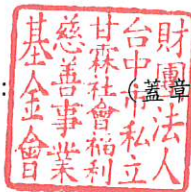 財團法人
台中市私立
甘霖社會福利
慈善事業
基金會
: (蓋章